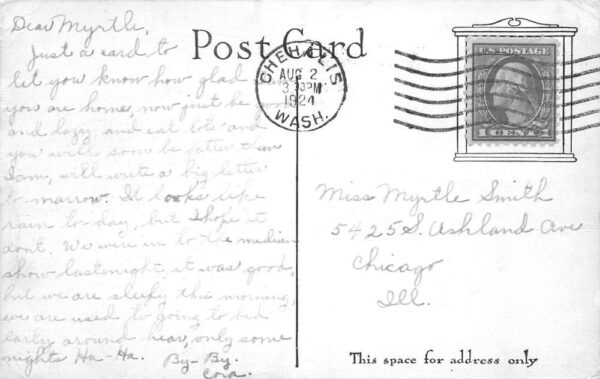 Post Card
Dear Myrtle,
Just a card to
let you know how glad
you are home, now just be good
and lazy, and eat lots and
you will soon be fatter than
I am, will write a big letter
to-morrow. It looks like
rain to day, but I hope it
dont. We were in to the medicine
show last night, it was good,
but we are sleepy this morning,
we are used to going to bed
early around hear, only some
nights Ha-Ha. By-By.
Cora.
CHEHALIS
AUG 2
3 30 PM
1924
WASH.
U.S. POSTAGE
1 CENT 1
Miss Myrtle Smith
5425 S. Ashland Ave
Chicago
Ill.
This space for address only